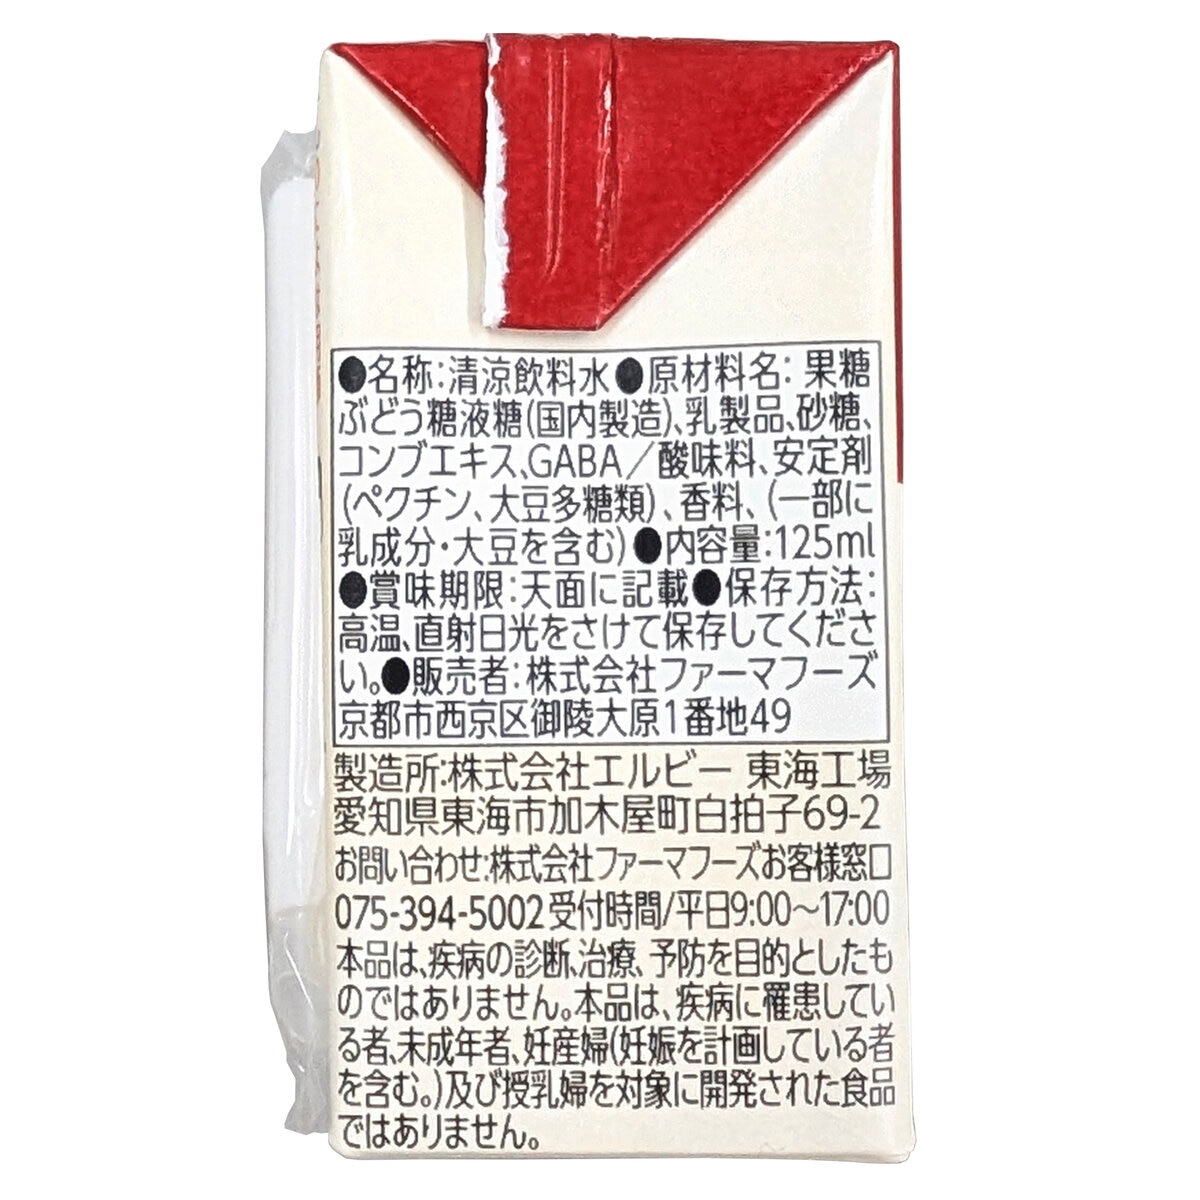 ●名称:清涼飲料水●原材料名:果糖
ぶどう糖液糖(国内製造)、乳製品、砂糖、
コンブエキス、GABA/酸味料、安定剤
(ペクチン、大豆多糖類)、香料、(一部に
乳成分・大豆を含む)●内容量:125ml
●賞味期限:天面に記載●保存方法:
高温、直射日光をさけて保存してくださ
い。●販売者:株式会社ファーマフーズ
京都市西京区御陵大原1番地49
製造所:株式会社エルビー 東海工場
愛知県東海市加木屋町白拍子69-2
お問い合わせ:株式会社ファーマフーズお客様窓口
075-394-5002受付時間/平日9:00~17:00
本品は、疾病の診断、治療、予防を目的としたも
のではありません。本品は、疾病に罹患してい
る者、未成年者、妊産婦(妊娠を計画している者
を含む。)及び授乳婦を対象に開発された食品
ではありません。